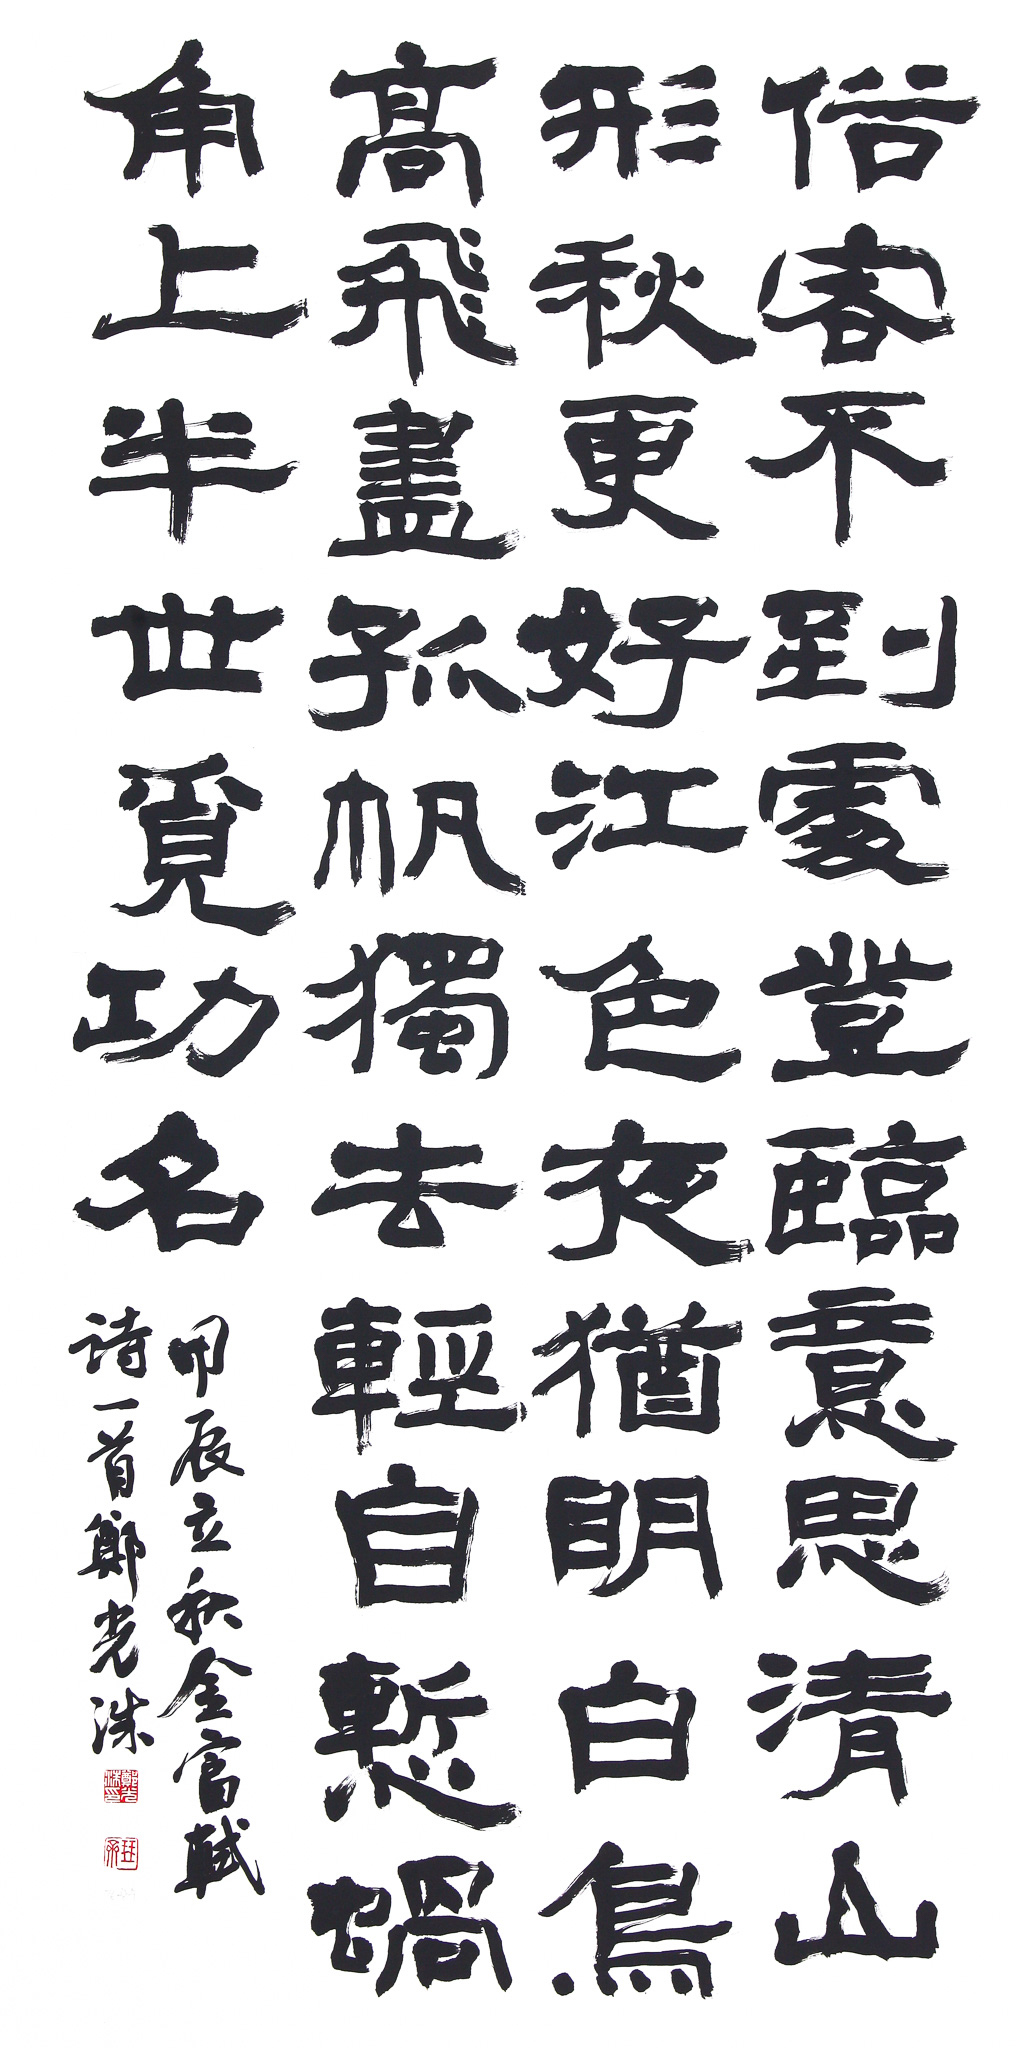 俗客不到處登臨意思清山
形秋更好江色夜猶明白鳥
高飛盡孤帆獨去輕自慙蝸
角上半世覓功名
甲辰立秋金富軾
詩一首鄭光洙